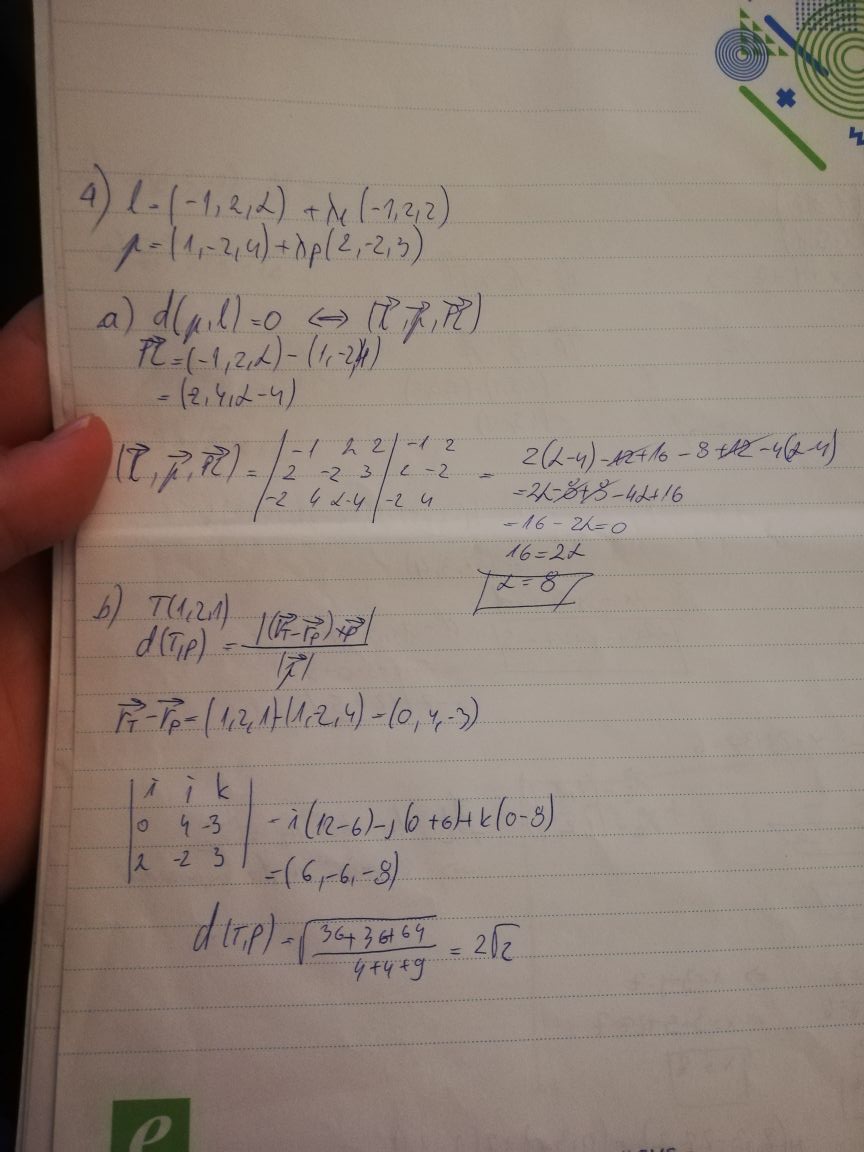 4) l = (-1, 2, α) + λl (-1, 2, 2)
p = (1, -2, 4) + λp (2, -2, 3)
a) d(p, l) = 0 ⟺ (l⃗, p⃗, PL⃗)
PL⃗ = (-1, 2, α) - (1, -2, 4)
= (2, 4, α-4)
(l⃗, p⃗, PL⃗) = | -1 2 2 | -1 2
2 -2 3 | 2 -2
-2 4 α-4 | -2 4
= 2(α-4) - 12 + 16 - 8 + 12 - 4(α-4)
= 2α - 8 + 8 - 4α + 16
= 16 - 2α = 0
16 = 2α
α = 8
b) T(1, 2, 1)
d(T, p) = |(r⃗T - r⃗p) × p⃗| / |p⃗|
r⃗T - r⃗p = (1, 2, 1) - (1, -2, 4) = (0, 4, -3)
| i j k |
| 0 4 -3 | = i(12-6) - j(0+6) + k(0-8)
| 2 -2 3 | = (6, -6, -8)
d(T, p) = √(36+36+64 / 4+4+9) = 2√2
e